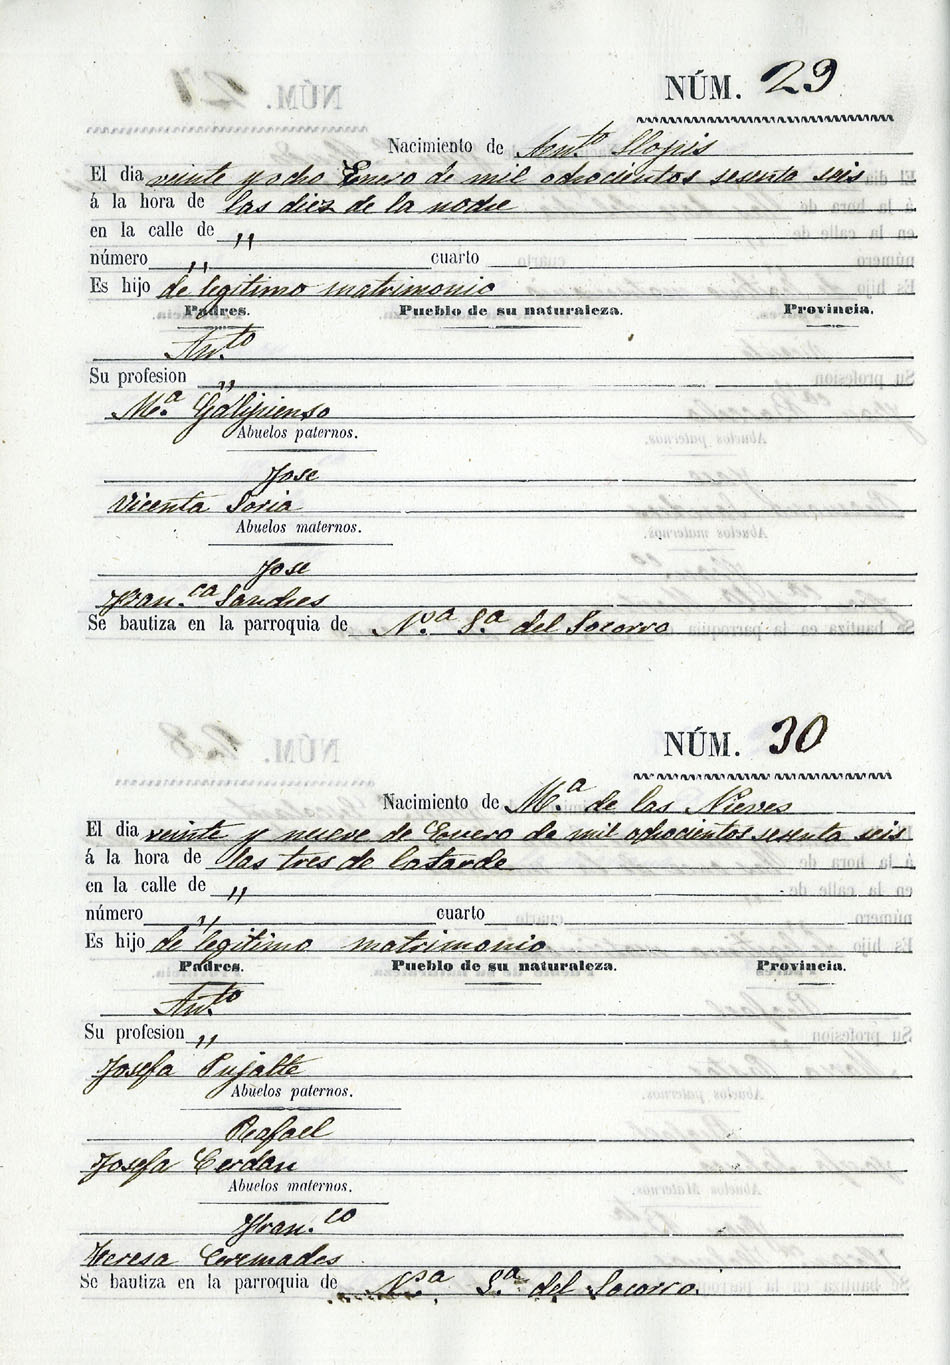 NÚM. 29
Nacimiento de Ant.to Llopis
El dia veinte y ocho Enero de mil ochocientos sesenta seis
á la hora de las diez de la noche
en la calle de "
número " cuarto
Es hijo de legitimo matrimonio
Padres. Pueblo de su naturaleza. Provincia.
Ant.to
Su profesion "
M.a Galipienso
Abuelos paternos.
Jose
Vicenta Soria
Abuelos maternos.
Jose
Fran.ca Sanches
Se bautiza en la parroquia de N.sa S.a del Socorro
NÚM. 30
Nacimiento de M.a de las Nieves
El dia veinte y nueve de Enero de mil ochocientos sesenta seis
á la hora de las tres de la tarde
en la calle de "
número " cuarto
Es hijo de legitimo matrimonio
Padres. Pueblo de su naturaleza. Provincia.
Ant.to
Su profesion "
Josefa Pujalte
Abuelos paternos.
Rafael
Josefa Cerdan
Abuelos maternos.
Fran.co
Teresa Cremades
Se bautiza en la parroquia de N.sa S.a del Socorro.